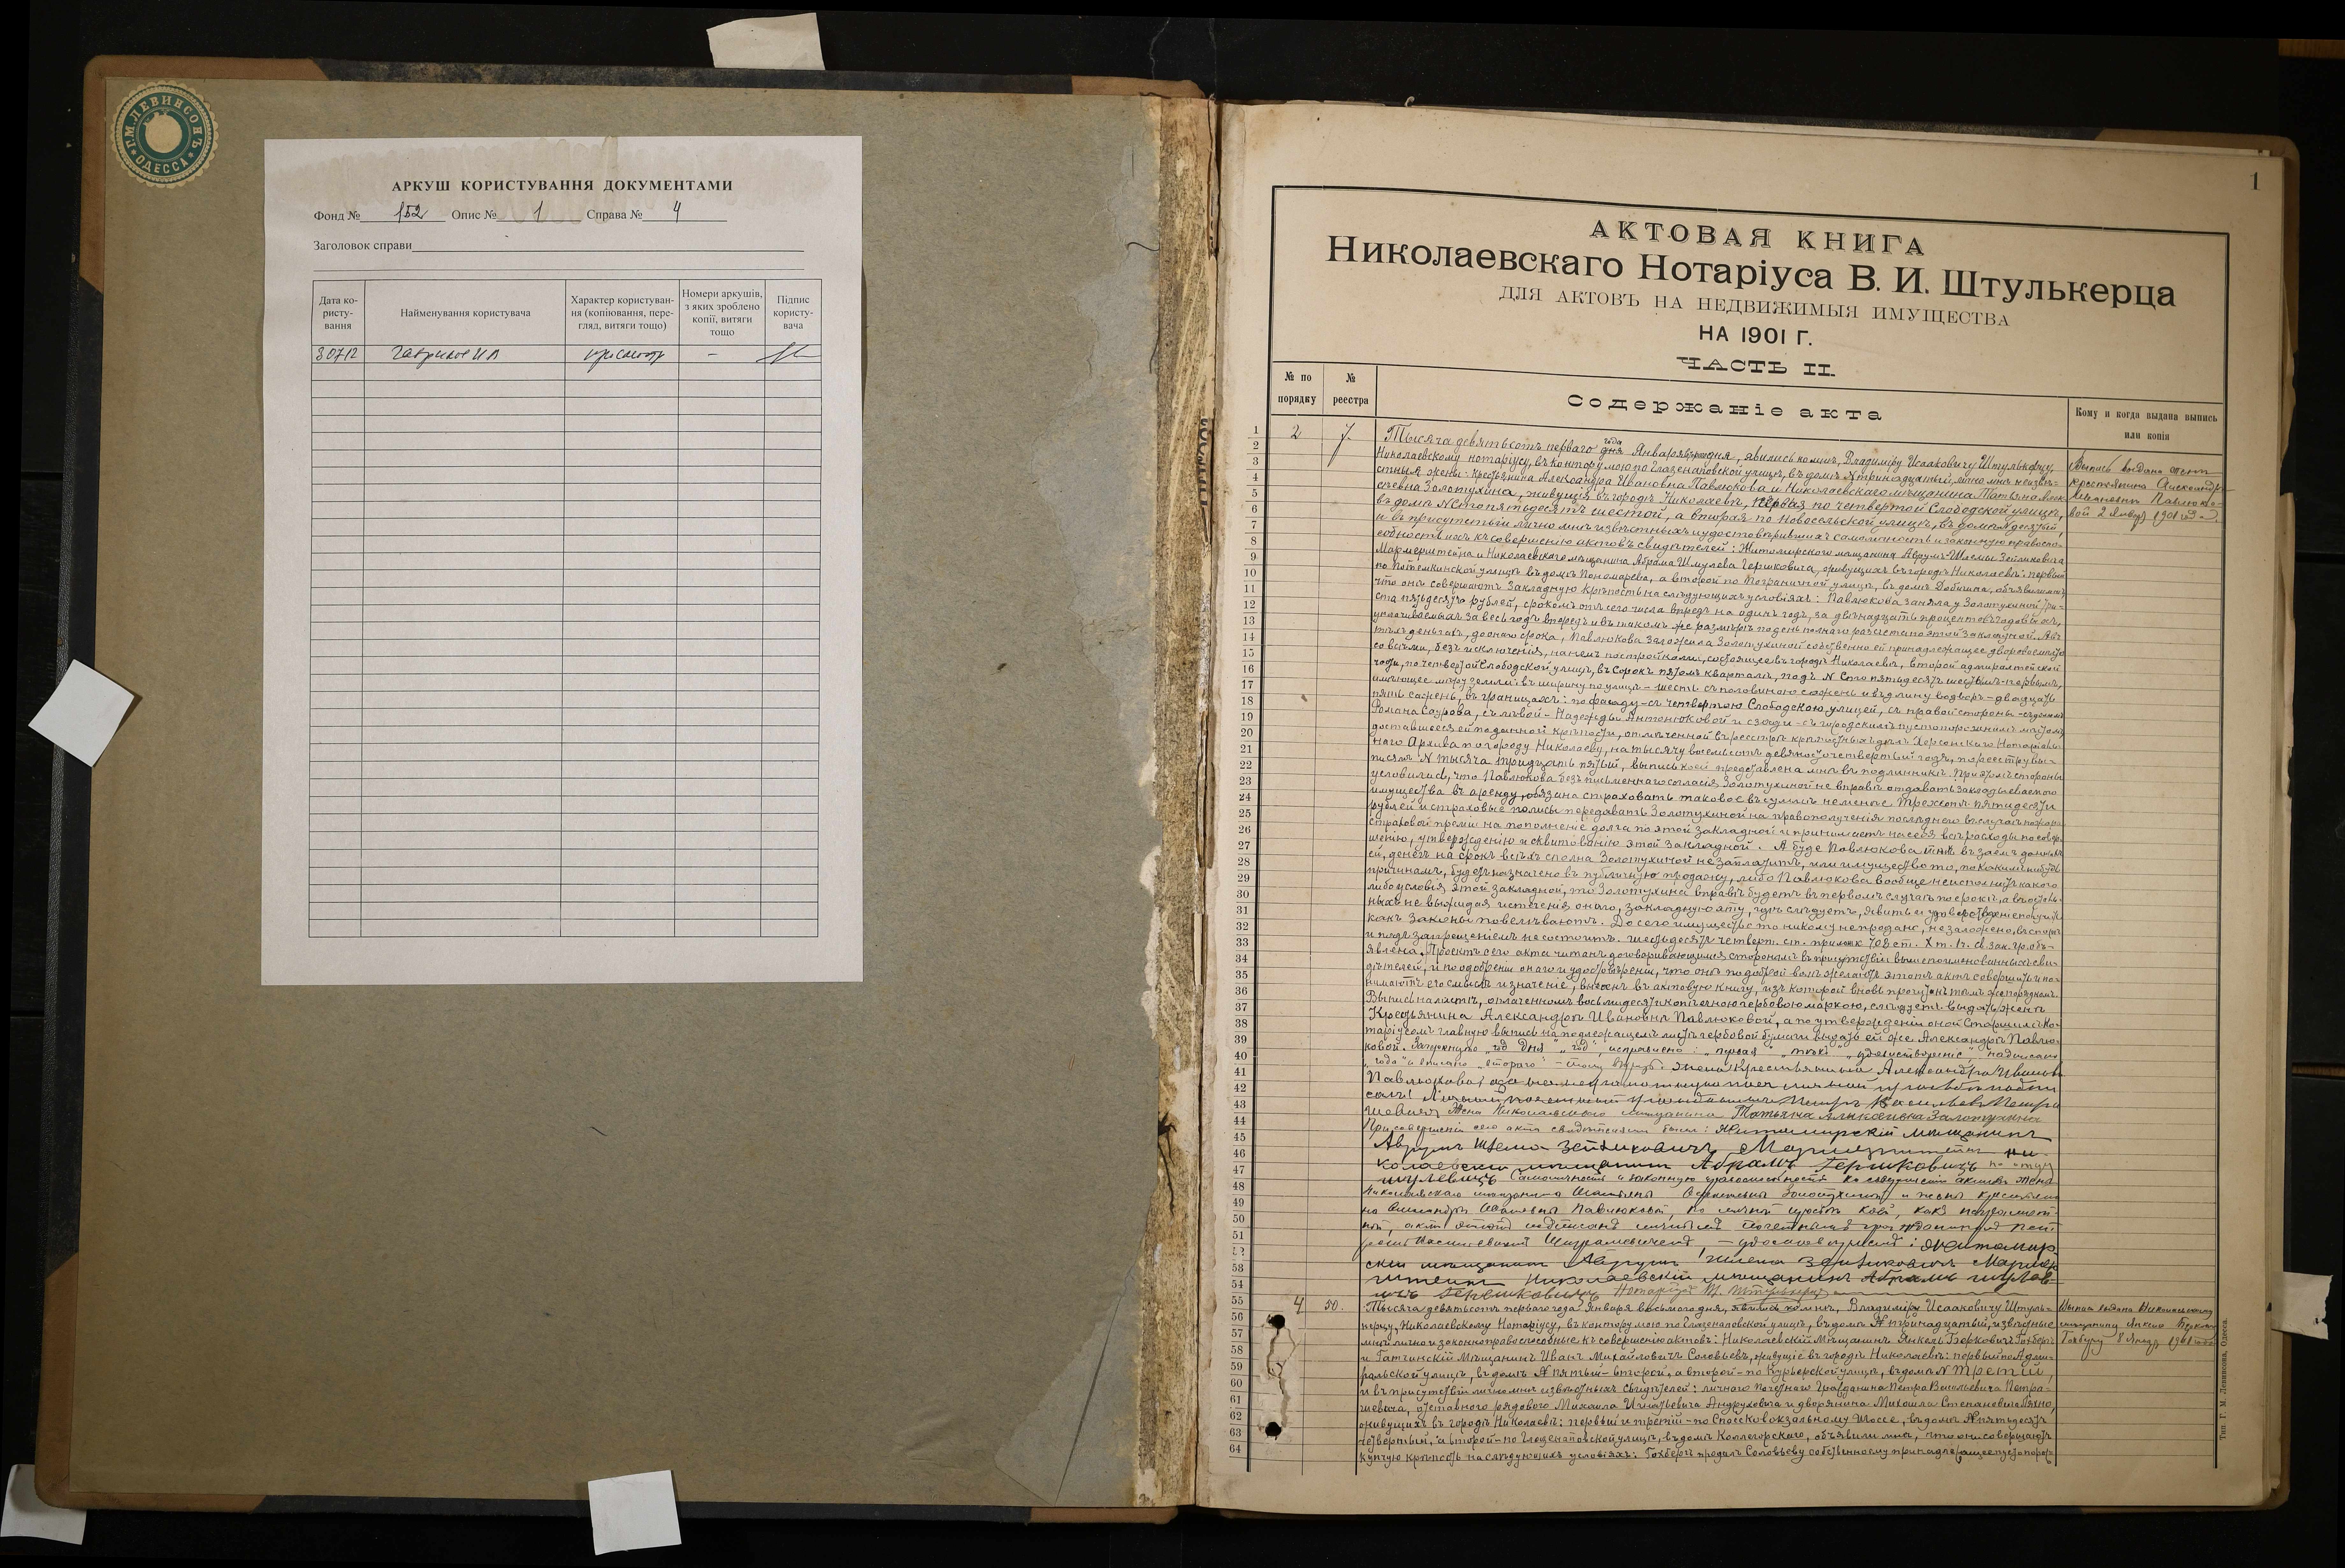 Г.М.ЛЕВИНСОНЪ
ОДЕССА
АРКУШ КОРИСТУВАННЯ ДОКУМЕНТАМИ
Фонд № 152 Опис № 1 Справа № 4
Заголовок справи
Дата ко-
ристу-
вання
Найменування користувача
Характер користуван-
ня (копіювання, пере-
гляд, витяги тощо)
Номери аркушів,
з яких зроблено
копії, витяги
тощо
Підпис
користу-
вача
30712 –
1
АКТОВАЯ КНИГА
Николаевскаго Нотаріуса В. И. Штулькерца
ДЛЯ АКТОВЪ НА НЕДВИЖИМЫЯ ИМУЩЕСТВА
НА 1901 Г.
ЧАСТЬ II.
№ по
порядку
№
реестра
Содержаніе акта
Кому и когда выдана выпись
или копія
2 7. Тысяча девятьсотъ перваго года Января дня, явились ко мнѣ, Владиміру Исааковичу Штулькерцу,
Николаевскому нотаріусу, въ контору мою по Глазенаповской улицѣ, въ домѣ № тринадцатый, лично мнѣ неизвѣ-
стныя жены: крестьянина Александра Ивановна Павлюкова и Николаевскаго мѣщанина Татьяна
Золотухина, живущія въ городѣ Николаевѣ, первая по четвертой Слободской улицѣ,
въ домѣ № сто пятьдесятъ шестой, а вторая по Новосельской улицѣ, въ домѣ № десятый,
и въ присутствіи лично мнѣ извѣстныхъ и удостовѣрившихъ самоличность и законную правоспо-
собность ихъ къ совершенію актовъ свидѣтелей: Житомирскаго мѣщанина Аврумъ-Шлемы Зейликовича
Мармерштейна и Николаевскаго мѣщанина Абрама Шмулева Гершковича, живущихъ въ городѣ Николаевѣ: первый
по Потемкинской улицѣ въ домѣ Пономарева, а второй по Пограничной улицѣ, въ домѣ Добкина, объявили мнѣ,
что онѣ совершаютъ закладную крѣпость на слѣдующихъ условіяхъ: Павлюкова заняла у Золотухиной три-
ста пятьдесятъ рублей, срокомъ отъ сего числа впредь на одинъ годъ, за двѣнадцать процентовъ годовыхъ,
уплачиваемыхъ за весь годъ впередъ и въ такомъ же размѣрѣ по день полнаго разсчета по этой закладной. А въ
тѣхъ деньгахъ, до онаго срока, Павлюкова заложила Золотухиной собственно ей принадлежащее дворовое мѣсто
со всѣми, безъ исключенія, на немъ постройками, состоящее въ городѣ Николаевѣ, второй адмиралтейской
части, по четвертой Слободской улицѣ, въ сорокъ пятомъ кварталѣ, подъ № сто пятьдесятъ шестымъ-первымъ,
имѣющее мѣру земли: въ ширину по улицѣ – шесть съ половиною саженъ и въ длину во дворъ – двадцать
пять саженъ, въ границахъ: по фасаду – съ четвертою Слободскою улицей, съ правой стороны – съ домомъ
Романа Саурова, съ лѣвой – Надежды Антонюковой и сзади – съ городскимъ пустопорожнимъ мѣстомъ,
доставшееся ей по данной крѣпости, отмѣченной въ реестрѣ крѣпостныхъ дѣлъ Херсонскаго Нотаріаль-
наго Архива по городу Николаеву, на тысячу восемьсотъ девяносто четвертый годъ, по реестру вы-
писей № тысяча тридцать пятый, выпись коей представлена мнѣ въ подлинникѣ. При этомъ стороны
условились, что Павлюкова безъ письменнаго согласія Золотухиной не вправѣ отдавать закладываемого
имущества въ аренду, обязана страховать таковое въ суммѣ не менѣе трехсотъ пятидесяти
рублей и страховые полисы передавать Золотухиной на право полученія послѣднею въ случаѣ пожара
страховой преміи на пополненіе долга по этой закладной и принимаетъ на себя всѣ расходы по совер-
шенію, утвержденію и квитованію этой закладной. А буде Павлюкова тѣхъ въ заемъ данныхъ
ей, денегъ на срокъ всѣхъ сполна Золотухиной не заплатитъ, или имущество то, по какимъ нибудь
причинамъ, будетъ назначено въ публичную продажу, либо Павлюкова вообще не исполнитъ какого
либо условія этой закладной, то Золотухина вправѣ будетъ въ первомъ случаѣ по срокѣ, а въ осталь-
ныхъ не выжидая истеченія онаго, закладную эту, гдѣ слѣдуетъ, явить и удовлетвореніе получить
какъ законы повелѣваютъ. До сего имущество то никому не продано, не заложено, въ спорѣ
и подъ запрещеніемъ не состоитъ. Шестьдесятъ четверт. ст. прилож. 708 ст. X т. 1 ч. св. зак. гр. объ-
явлена. Проектъ сего акта читанъ договаривающимся сторонамъ въ присутствіи вышепоименованныхъ сви-
дѣтелей, и по одобреніи онаго и удостовѣреніи, что онѣ по доброй волѣ желаютъ этотъ актъ совершить и по-
нимаютъ его смыслъ и значеніе, внесенъ въ актовую книгу, изъ которой вновь прочитанъ тѣмъ же порядкомъ.
Выпись на листѣ, оплаченномъ восьмидесяти копѣечною гербовою маркою, слѣдуетъ выдать женѣ
Крестьянина Александрѣ Ивановнѣ Павлюковой, а по утвержденіи оной Старшимъ Но-
таріусомъ главную выпись на подлежащемъ листѣ гербовой бумаги выдать ей же Александрѣ Павлю-
ковой.
Павлюкова,
Жена Николаевского мещанина Татьяна Золотухина
При совершеніи сего акта свидѣтелями были: Житомирскій мѣщанинъ
Аврумъ Шлема Зейликовичъ Мармерштейнъ Ни-
колаевскій мѣщанинъ Абрамъ Гершковичъ
Выпись выдана женѣ
крестьянина Александрѣ
Ивановнѣ Павлюко-
вой 2 Января 1901 года.
4 50. Тысяча девятьсотъ перваго года Января восьмого дня, явились ко мнѣ, Владиміру Исааковичу Штуль-
керцу, Николаевскому Нотаріусу, въ контору мою по Глазенаповской улицѣ, въ домѣ № тринадцатый, извѣстные
мнѣ лично и законно правоспособные къ совершенію актовъ: Николаевскій Мѣщанинъ Янкель Берковичъ Гохбергъ
и Гатчинскій Мѣщанинъ Иванъ Михайловичъ Соловьевъ, живущіе въ городѣ Николаевѣ: первый по Адми-
ральской улицѣ, въ домѣ № пятый-второй, а второй – по Курьерской улицѣ, въ домѣ № третій,
и въ присутствіи лично мнѣ извѣстныхъ свидѣтелей: личнаго Почетнаго Гражданина Петра Васильевича Петра-
шевича, отставного рядового Михаила Игнатьевича Андруховича и дворянина Михаила Степановича Ляхно,
живущихъ въ городѣ Николаевѣ: первый и третій – по Спасско вокзальному Шоссе, въ домѣ № пятьдесятъ
четвертый, а второй – по Глазенаповской улицѣ, въ домѣ Коллегорскаго, объявили мнѣ, что они совершаютъ
купчую крѣпость на слѣдующихъ условіяхъ: Гохбергъ продалъ Соловьеву собственно ему принадлежащее пустопорож-
Тип. Г. М. Левинсона, Одесса.